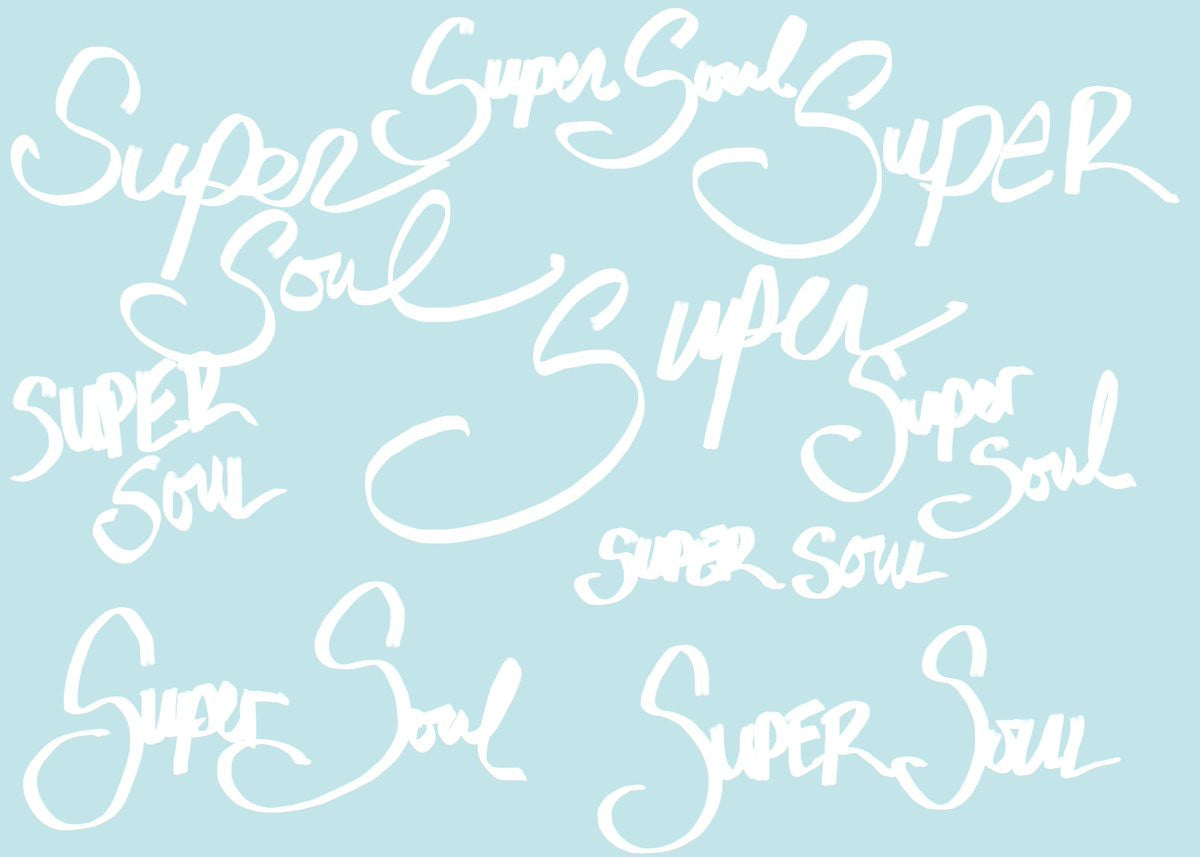 Super Soul
Super
Soul
Super
Super
SUPER
SOUL
Super
Soul
SUPER SOUL
Super Soul
SUPER SOUL